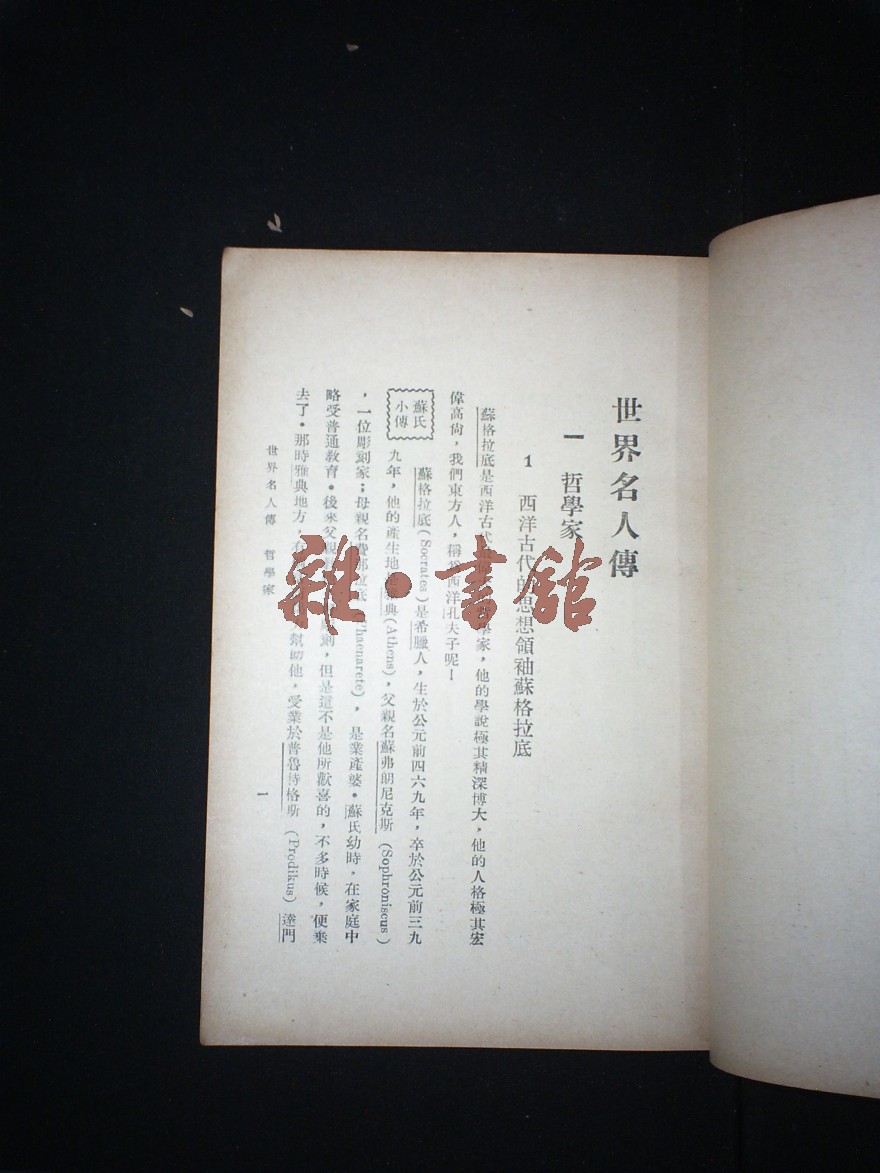 世界名人傳
一 哲學家
1 西洋古代的思想領袖蘇格拉底
蘇格拉底是西洋古代 哲學家，他的學說極其精深博大，他的人格極其宏
偉高尙，我們東方人，稱爲西洋孔夫子呢！
蘇氏
小傳
蘇格拉底(Socrates)是希臘人，生於公元前四六九年，卒於公元前三九
九年，他的產生地 雅典(Athens)，父親名蘇弗朗尼克斯(Sophroniscus)
，一位彫刻家；母親名費那拉底(Phaenarete)，是業產婆。蘇氏幼時，在家庭中
略受普通教育。後來父親 刻，但是這不是他所歡喜的，不多時候，便棄
去了。那時雅典地方，有 幫助他，受業於普魯特格斯(Prodikus)達門
世界名人傳 哲學家
一
雜·書館